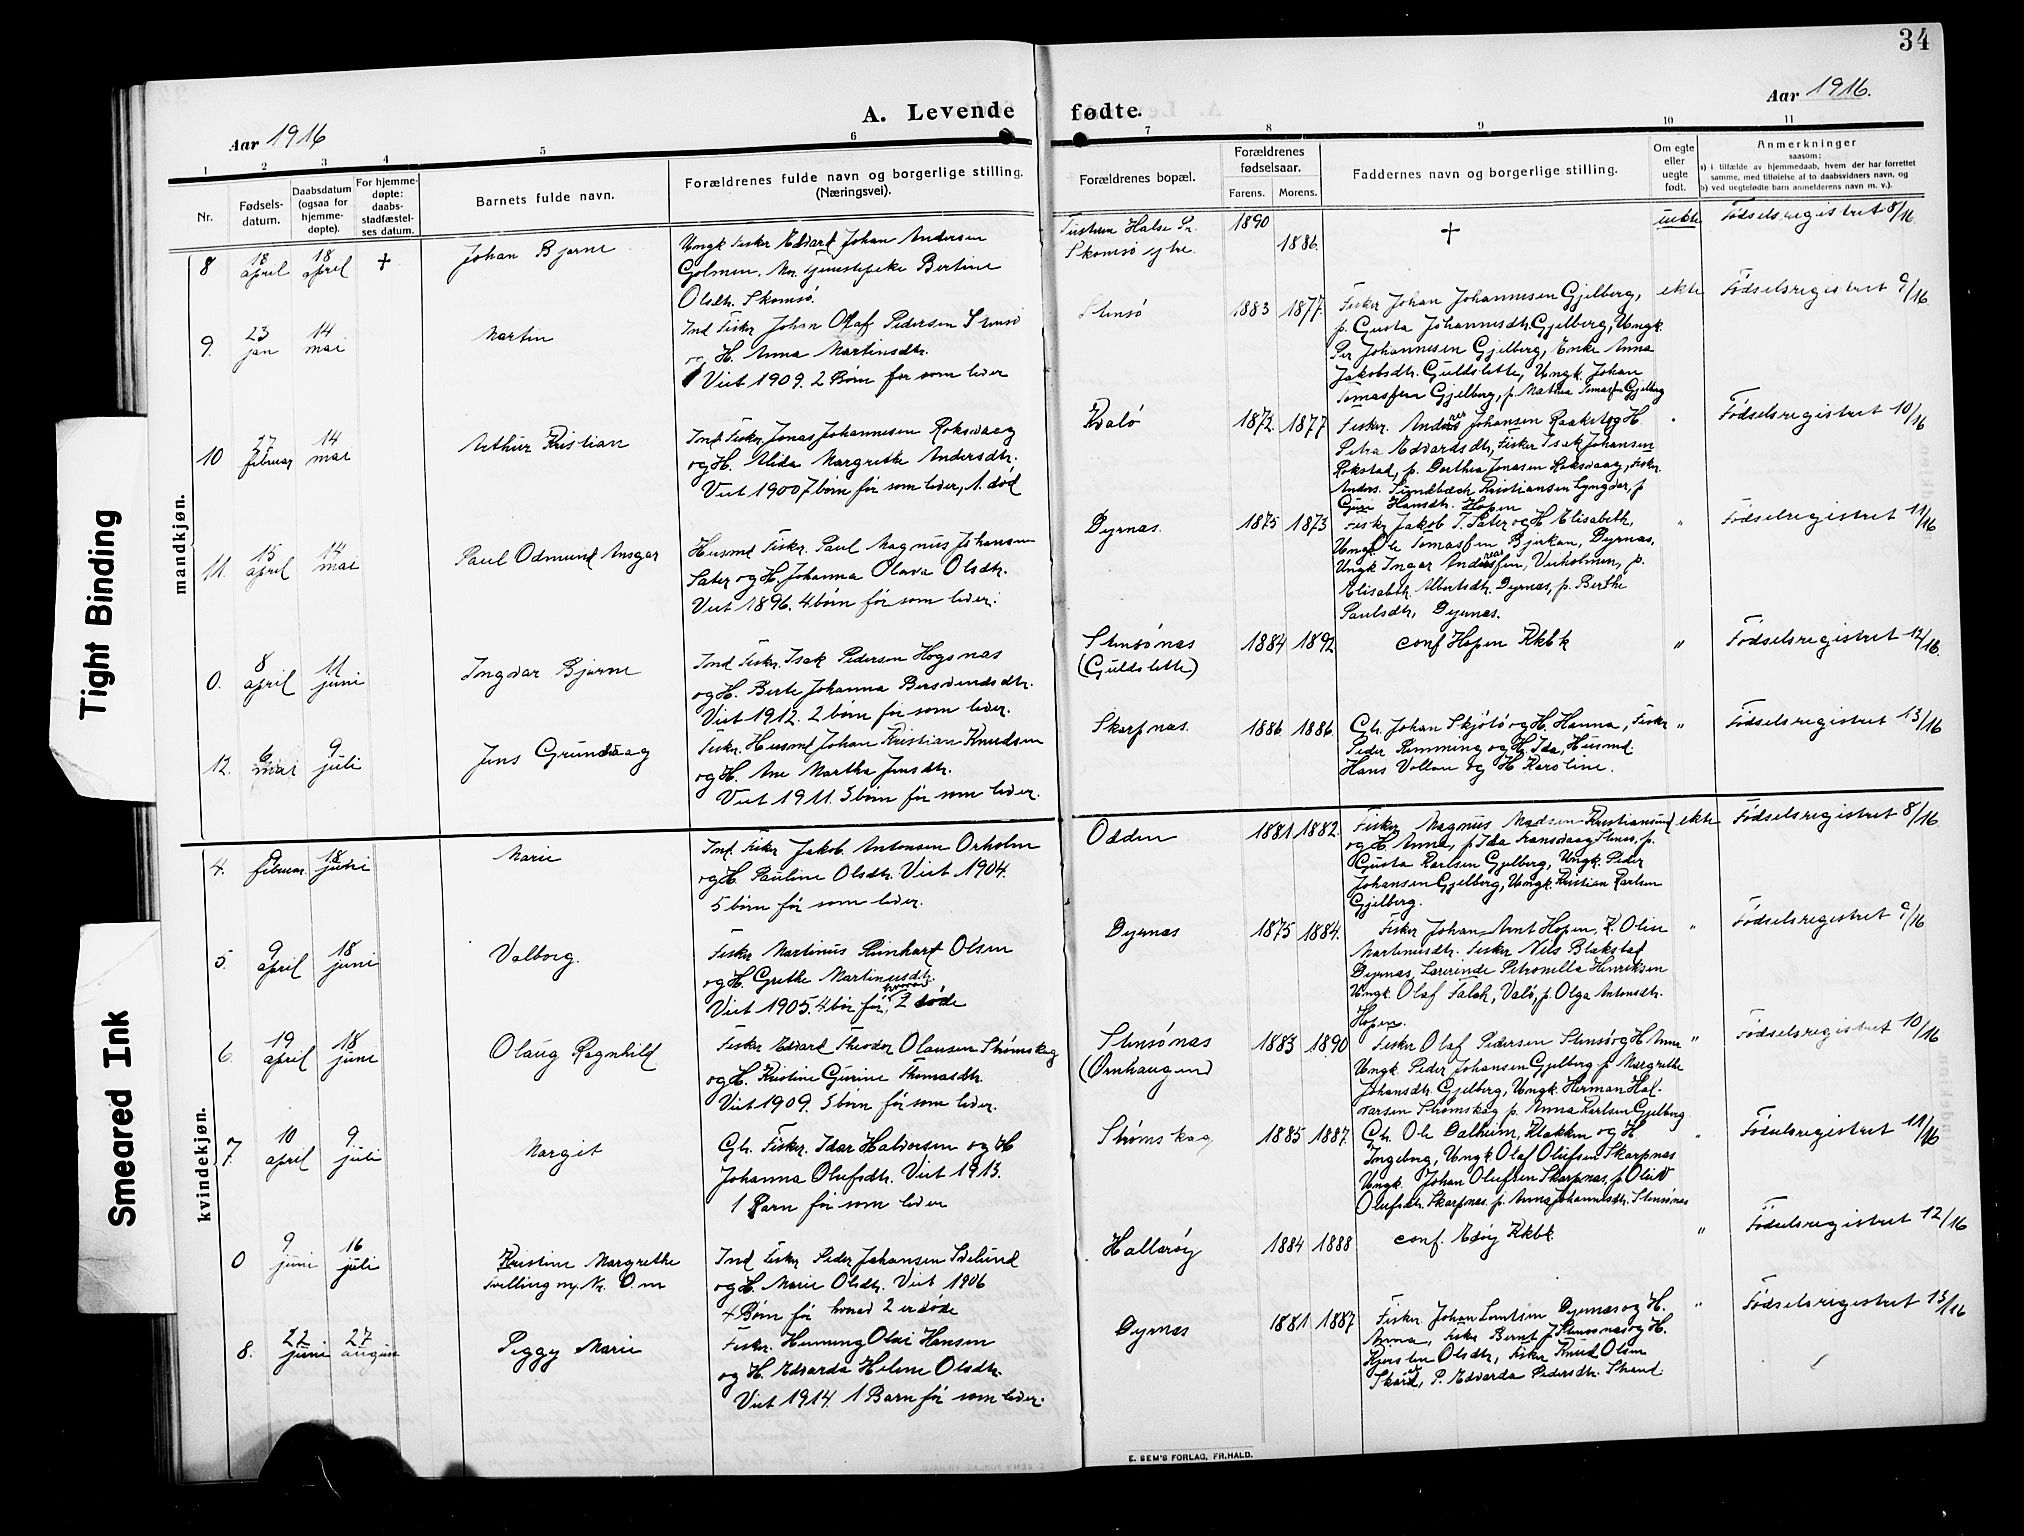 34
Aar 1916
A. Levende fødte.
Aar 1916.
1 2 3 4 5 6 7 8 9 10 11
Nr.
Fødsels-
datum.
Daabsdatum
(ogsaa for
hjemme-
døpte).
For hjemme-
døpte:
daabs-
stadfæstel-
ses datum.
Barnets fulde navn.
Forældrenes fulde navn og borgerlige stilling.
(Næringsvei).
Forældrenes bopæl.
Forældrenes
fødselsaar.
Farens. Morens.
Faddernes navn og borgerlige stilling.
Om egte
eller
uegte
født.
Anmerkninger
saasom:
a) i tilfælde av hjemmedaab, hvem der har forrettet
samme, med tilføielse af to daabsvidners navn, og
b) ved uegtefødte barn anmelderens navn m. v.).
mandkjøn.
8 18 april 18 april + Johan Bjarne
Ungk Fisker Edvard Johan Andersen
Golmen. Mor tjenestepike Bertine
Olsdtr. Skomsø.
Tustern Halse Pr.
Skomsø ytre
1890 1886. + uekte Fødselsregistret 8/16.
9. 23 jan 14 mai Martin
Ind Fisker Johan Olaf Pedersen Stensø
og H. Anna Martinsdtr.
Viet 1909. 2 Børn før som lever
Stensø 1883 1877.
Fisker Johan Johannesen Gjelberg,
p. Gusta Johannesdtr. Gjelberg, Ungk.
Per Johannesen Gjelberg, Enke Anna
Jakobsdtr. Guldslette, Ungk. Johan
Tomassen Gjelberg, p. Mathea Tomassen Gjelberg
ekte Fødselsregistret 9/16.
10 27 februar 14 mai Arthur Kristian
Ind. Fisker Jonas Johannesen Roksvaag
og H. Alida Margrethe Andersdtr.
Viet 1900 7 børn før som lever, 1. død
Kvalø 1872. 1877
Petra Edvardsdtr, Fisker Isak Johansen
Rokstad, p. Dorthea Jonasen Roksvaag, Fisker
Anders. Sundbæch Kristiansen Lyngvær, p
Guri Hansdtr. Hopen
" Fødselsregistret 10/16
11. 15 april 14 mai Paul Odmund Ansgar
Husmd Fisker. Paul Magnus Johansen
Sæter og H. Johanna Olava Olsdtr.
Viet 1896. 4 børn før som lever.
Dyrnæs. 1875 1873
Fisker Jakob T. Sæter og H Elisabeth,
Ungk Ole Tomassen Bjerkan, Dyrnæs,
Elisabeth Albertsdtr. Dyrnæs, p. Berthe
Paulsdtr, Dyrnæs.
" Fødselsregistret 11/16
0. 8 april 11 juni Ingvar Bjarne
Ind Fisker. Isak Pedersen Hogsnæs
og H. Berte Johanna Bersvendsdtr.
Viet 1912. 2 børn før som lever.
Stensønæs
(Guldslette)
1884 1892 conf Hopen Kkbk " Fødselsregistret 12/16.
12. 6 mai 9 juli Jens Grundvaag
Fisker. Husmd Johan Kristian Knudsen
og H. Ane Martha Jensdtr.
Viet 1911. 3 børn før som lever.
Skarpnæs. 1886. 1886.
Gb. Johan Skjølø og H. Hanna, Fisker
Peder Remming og H. Ida, Husmd
Hans Vollan og H Karoline.
" Fødselsregistret 13/16
kvindekjøn.
4. februar. 18 juni Marie
Ind Fisker Jakob Antonsen Orholm
og H. Pauline Olsdtr. Viet 1904.
5 børn før som lever.
Odden 1881 1882.
Fisker Magnus Madsen Kristiansund
Gusta Karlsen Gjelberg, Ungk. Peder
Johansen Gjelberg, Ungk. Kristian Karlsen
Gjelberg.
ekte Fødselsregistret 8/16.
5. 9 april 18 juni Valborg.
Fisker Martinus Reinhart Olsen
og H. Grethe Martinusdtr.
Viet 1905. 4 bør før, hvorav 2 døde
Dyrnæs 1875 1884.
Fisker Johan Arnt Hopen, K. Oline
Martinusdtr. Fisker Nils Blakstad
Dyrnæs, Lærerinde Petronella Henriksen
Ungk. Olaf Falch, Valø, p. Olga Antonsdtr.
Hopen.
" Fødselsregistret 9/16
6. 19 april 18 juni Olaug Ragnhild
Fisker Edvard Theodor Olausen Strømskag
og H. Kristine Gurine Thomasdtr.
Viet 1909. 3 børn før som lever.
Stensønæs
(Ørnhaugen)
1883 1890
Fisker Olaf Pedersen Stensø og H Anna
Ungk Peder Johansen Gjelberg p Margrethe
Johansdtr. Gjelberg, Ungk. Herman Hal-
varsen Strømskag p. Anna Karlsen Gjelberg
" Fødselsregistret 10/16
7. 10 april 9. juli Margit
Gb. Fisker. Idar Halvorsen og H
Johanna Olufsdtr. Viet 1913.
1 Barn før som lever
Strømskag 1885 1887.
Gb. Ole Dalheim, Klakken og H
Ingeborg, Ungk Olaf Olufsen Skarpnæs
Ungk. Johan Olufsen Skarpnæs, p. Oline
Olufsdtr. Skarpnæs. p. Anna Johannesdtr. Stensønæs
" Fødselsregistret 11/16
0 9 juni 16 juli Kristine Margrethe
Tvilling m. Nr. 0. m
Ind Fisker Peder Johansen Svelund
og H. Marie Olsdtr. Viet 1906
4 Børn før hvorav 2 er døde
Hallarøy 1884 1888 conf. Edøy Kkbk " Fødselsregistret 12/16
8. 22 juni 27 august Peggy Marie
Fisker. Henning Olai Hansen
og H. Edvarda Helene Olsdtr.
Viet 1914. 1 Barn før som lever.
Dyrnæs 1881 1887
Fisker. Johan Lantsen Dyrnæs og H.
Anna, Fisker Bernt J. Stensønæs og H.
Kjersten Olsdtr, Fisker Knud Olsen
Skård, P. Edvarda Pedersdtr. Strand
" Fødselsregistret 13/16
E. SEM'S FORLAG, FR.HALD.
Tight Binding
Smeared Ink